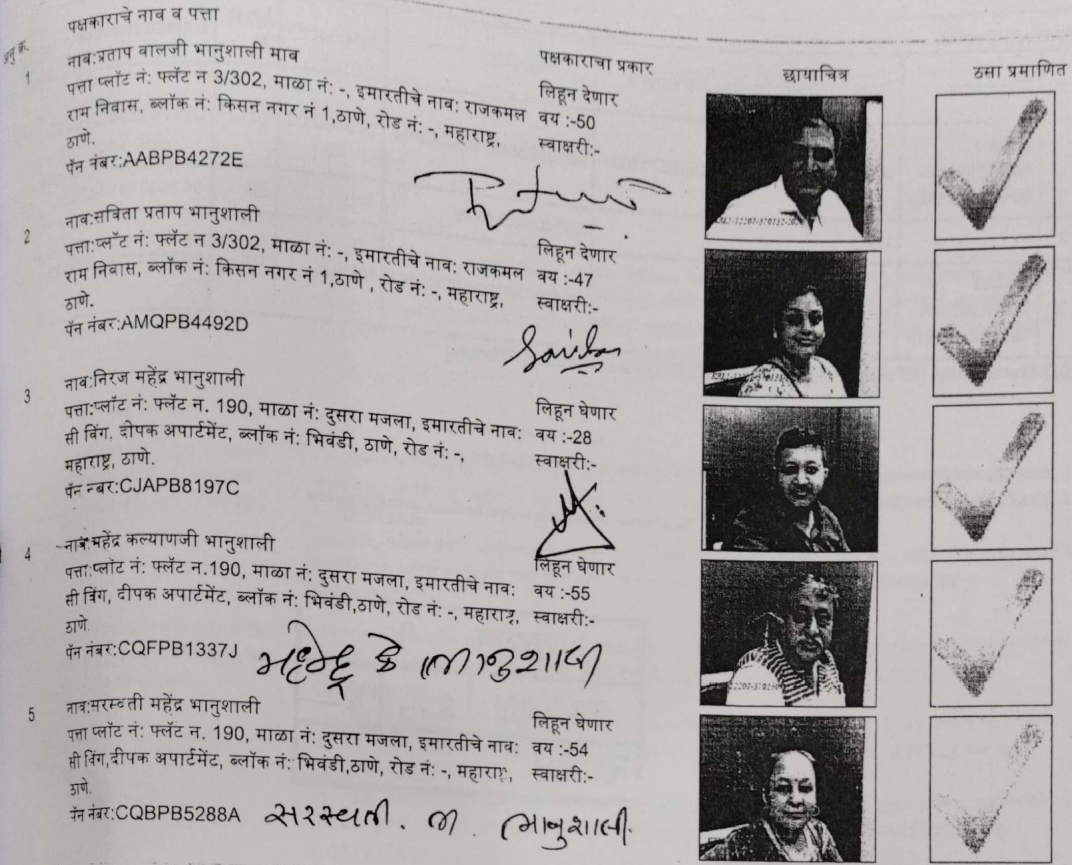 पक्षकाराचे नाव व पत्ता
अनु क्र.
पक्षकाराचा प्रकार
छायाचित्र
ठसा प्रमाणित
1
नाव:प्रताप वालजी भानुशाली माव
पत्ता प्लॉट नं: फ्लॅट न 3/302, माळा नं: -, इमारतीचे नाव: राजकमल
राम निवास, ब्लॉक नं: किसन नगर नं 1,ठाणे, रोड नं: -, महाराष्ट्र,
ठाणे.
पॅन नंबर:AABPB4272E
लिहून देणार
वय :-50
स्वाक्षरी:-
2
नाव:सविता प्रताप भानुशाली
पत्ता:प्लॉट नं: फ्लॅट न 3/302, माळा नं: -, इमारतीचे नाव: राजकमल
राम निवास, ब्लॉक नं: किसन नगर नं 1,ठाणे , रोड नं: -, महाराष्ट्र,
ठाणे.
पॅन नंबर:AMQPB4492D
लिहून देणार
वय :-47
स्वाक्षरी:-
3
नाव:निरज महेंद्र भानुशाली
पत्ता:प्लॉट नं: फ्लॅट न. 190, माळा नं: दुसरा मजला, इमारतीचे नाव:
सी विंग, दीपक अपार्टमेंट, ब्लॉक नं: भिवंडी, ठाणे, रोड नं: -,
महाराष्ट्र, ठाणे.
पॅन नंबर:CJAPB8197C
लिहून घेणार
वय :-28
स्वाक्षरी:-
4
नाव:महेंद्र कल्याणजी भानुशाली
पत्ता:प्लॉट नं: फ्लॅट न.190, माळा नं: दुसरा मजला, इमारतीचे नाव:
सी विंग, दीपक अपार्टमेंट, ब्लॉक नं: भिवंडी,ठाणे, रोड नं: -, महाराष्ट्र,
ठाणे.
पॅन नंबर:CQFPB1337J
लिहून घेणार
वय :-55
स्वाक्षरी:-
5
नाव:सरस्वती महेंद्र भानुशाली
पत्ता प्लॉट नं: फ्लॅट न. 190, माळा नं: दुसरा मजला, इमारतीचे नाव:
सी विंग,दीपक अपार्टमेंट, ब्लॉक नं: भिवंडी,ठाणे, रोड नं: -, महाराष्ट्र,
ठाणे.
पॅन नंबर:CQBPB5288A
लिहून घेणार
वय :-54
स्वाक्षरी:-
સરસ્વતી. મ. ભાનુશાલી.